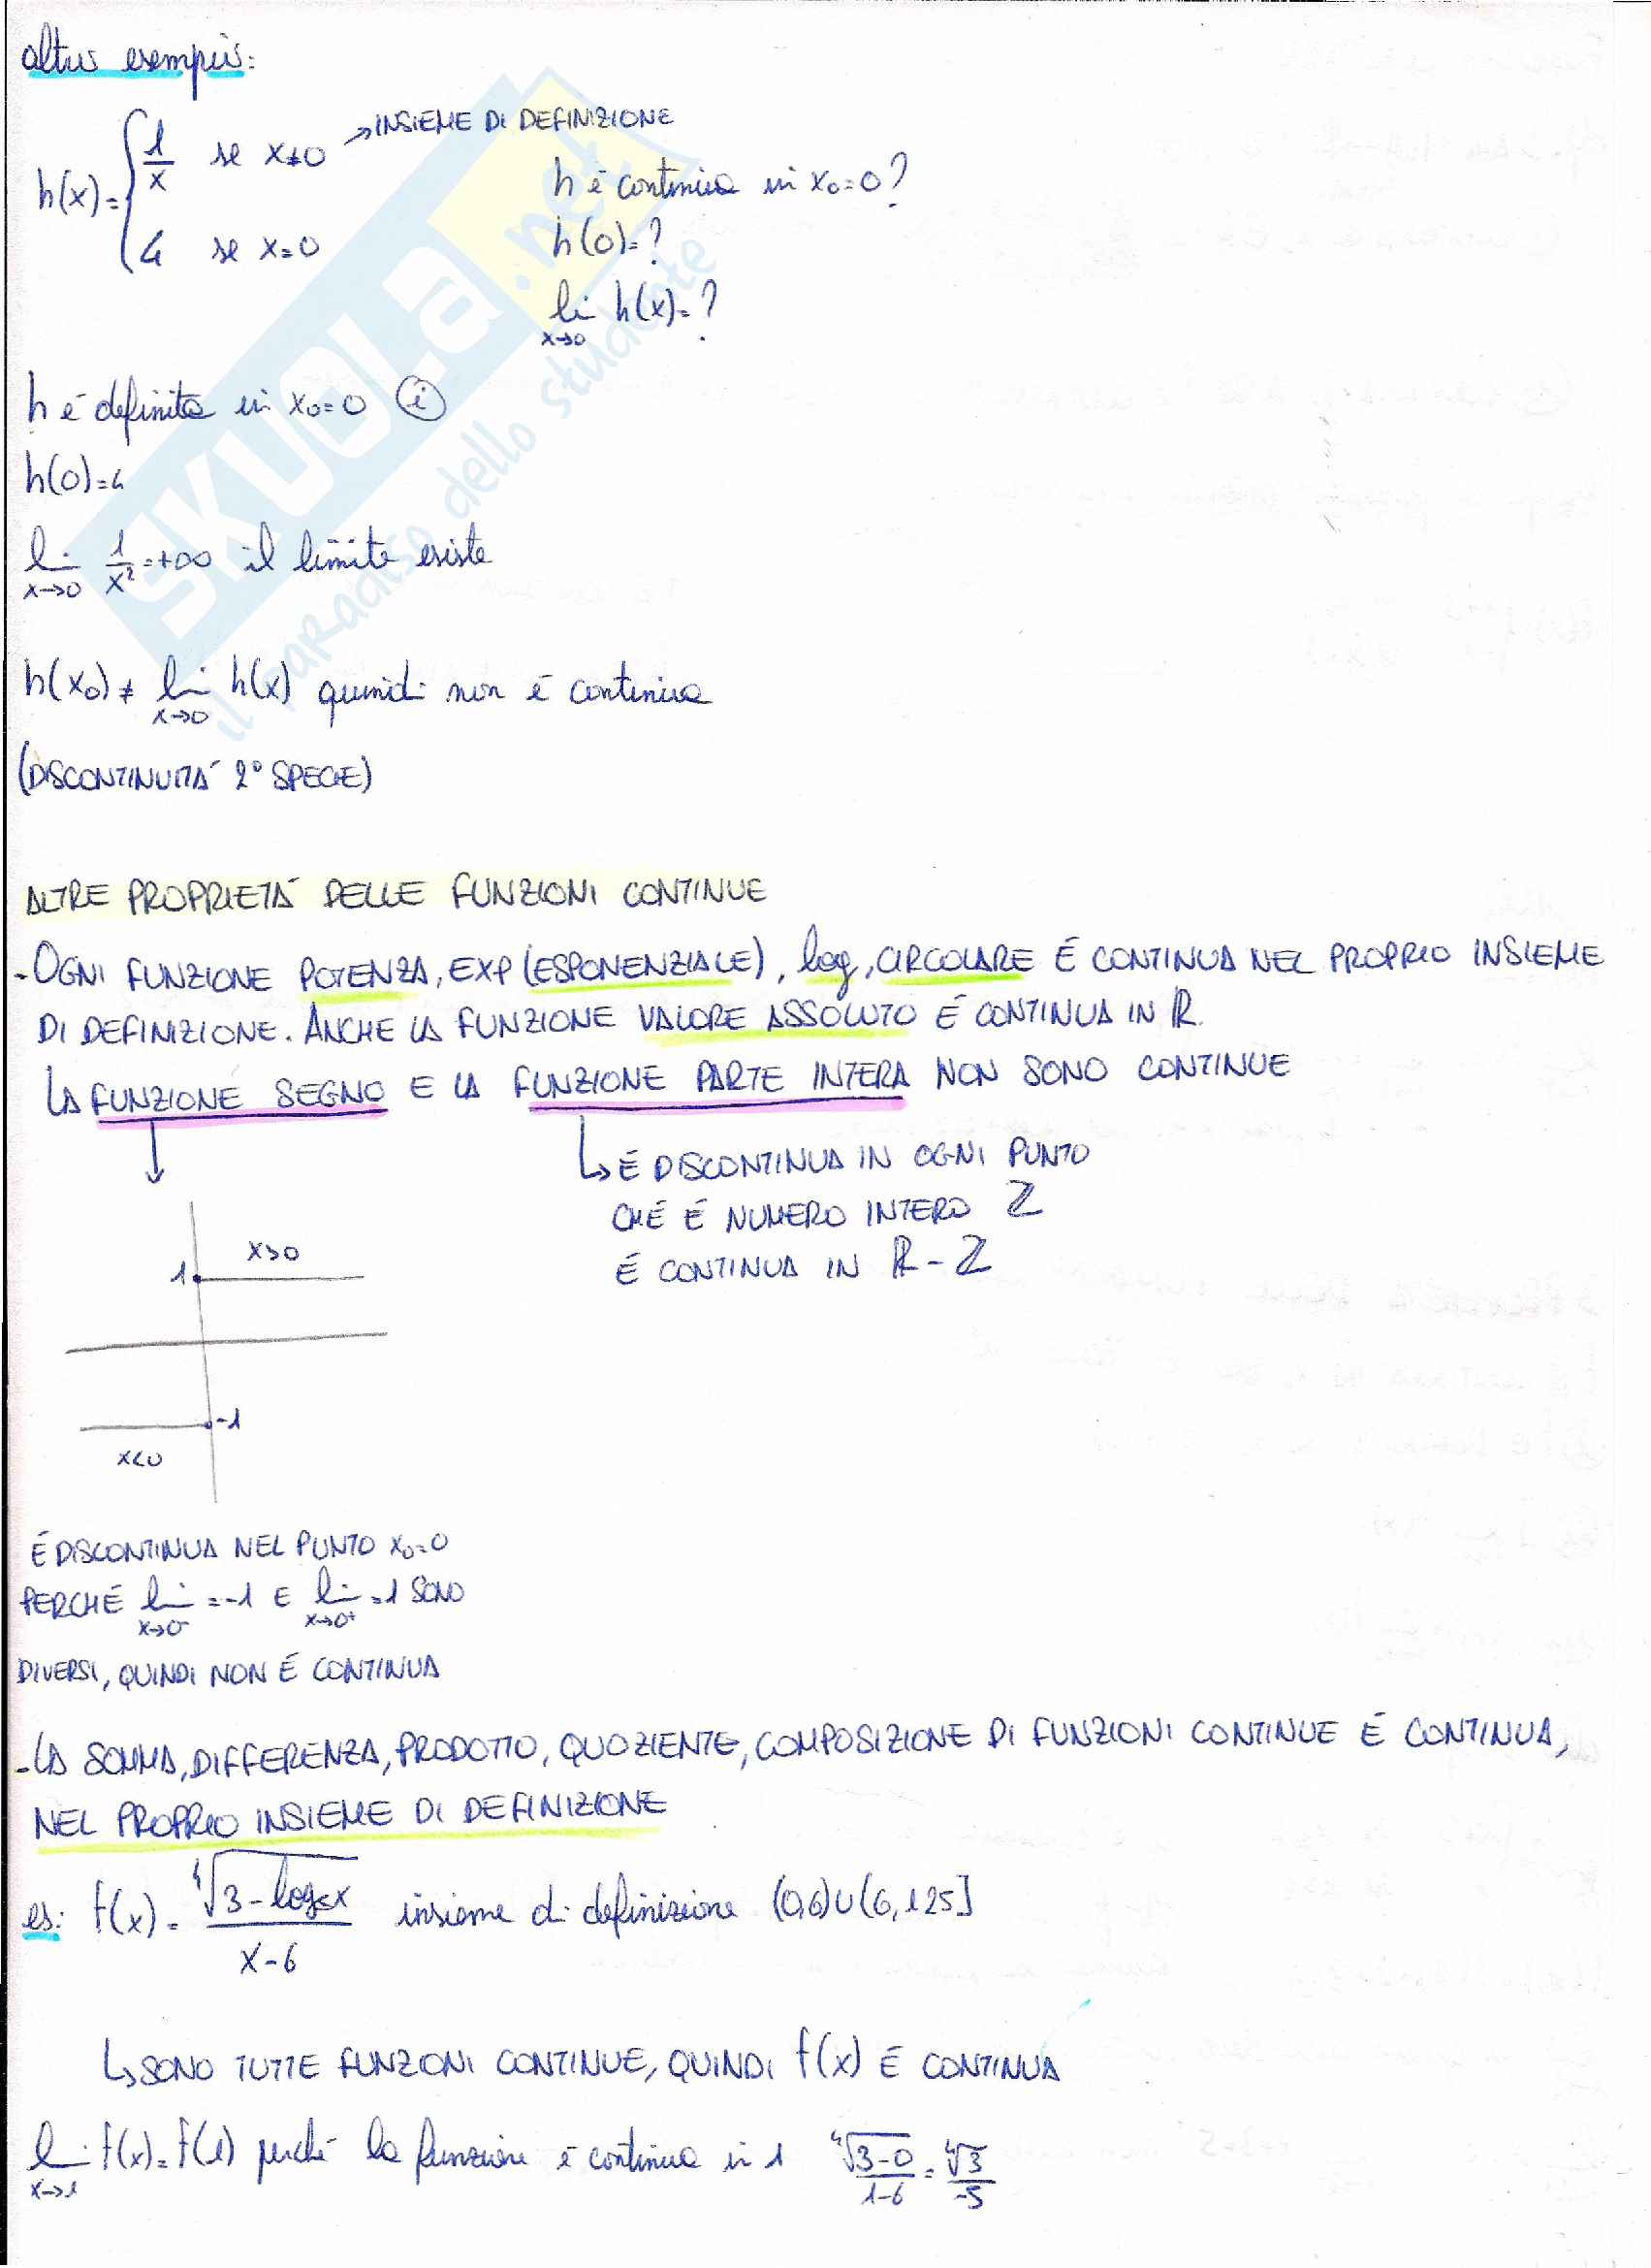 altri esempi:
h(x)= { 1/x se x≠0 → INSIEME DI DEFINIZIONE
4 se x=0
h è continua in x₀=0?
h(0)=?
lim x→0 h(x)=?
h è definita in x₀=0 (i)
h(0)=4
lim x→0 1/x²=+∞ il limite esiste
h(x₀) ≠ lim x→0 h(x) quindi non è continua
(DISCONTINUITÀ 2° SPECIE)
SKUOLA.net
il paradiso dello studente
ALTRE PROPRIETÀ DELLE FUNZIONI CONTINUE
- OGNI FUNZIONE POTENZA, EXP (ESPONENZIALE), log, CIRCOLARE É CONTINUA NEL PROPRIO INSIEME
DI DEFINIZIONE. ANCHE LA FUNZIONE VALORE ASSOLUTO É CONTINUA IN ℝ.
LA FUNZIONE SEGNO E LA FUNZIONE PARTE INTERA NON SONO CONTINUE
↳ É DISCONTINUA IN OGNI PUNTO
CHÉ É NUMERO INTERO ℤ
É CONTINUA IN ℝ - ℤ
x>0
1
-1
x<0
É DISCONTINUA NEL PUNTO x₀=0
PERCHÉ lim x→0⁻ =-1 E lim x→0⁺ =1 SONO
DIVERSI, QUINDI NON É CONTINUA
- LA SOMMA, DIFFERENZA, PRODOTTO, QUOZIENTE, COMPOSIZIONE DI FUNZIONI CONTINUE É CONTINUA,
NEL PROPRIO INSIEME DI DEFINIZIONE
es: f(x)= ⁴√(3-log₅x) / (x-6) insieme di definizione (0,6)∪(6,125]
↳ SONO TUTTE FUNZIONI CONTINUE, QUINDI f(x) É CONTINUA
lim x→1 f(x)=f(1) perché la funzione è continua in 1 ⁴√(3-0) / (1-6) = ⁴√3 / -5